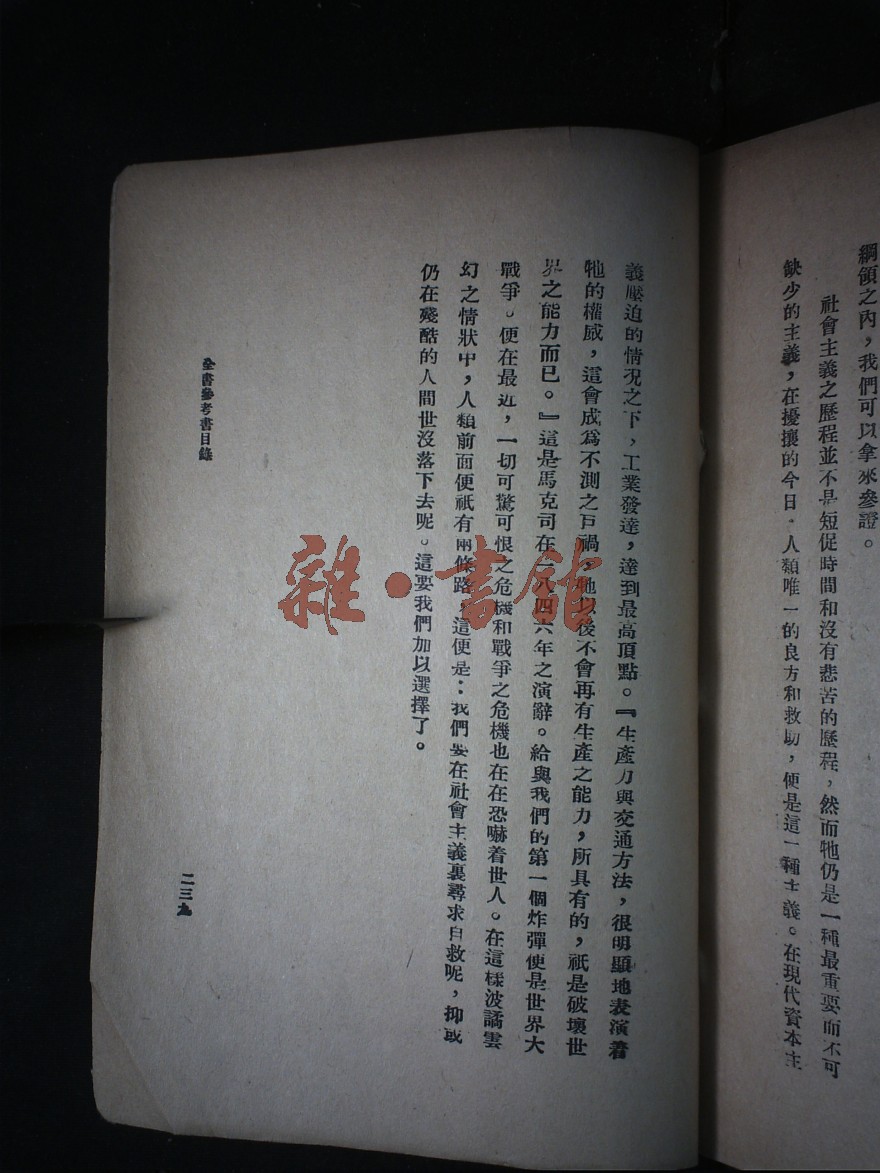 綱領之內，我們可以拿來參證。
社會主義之歷程並不是短促時間和沒有悲苦的歷程，然而牠仍是一種最重要而不可
缺少的主義，在擾攘的今日，人類唯一的良方和救助，便是這一種主義。在現代資本主
義壓迫的情況之下，工業發達，達到最高頂點。『生產力與交通方法，很明顯地表演着
牠的權威，這會成爲不測之巨禍，牠以後不會再有生產之能力，所具有的，祇是破壞世
界之能力而已。』這是馬克司在一八四六年之演辭。給與我們的第一個炸彈便是世界大
戰爭。便在最近，一切可驚可恨之危機和戰爭之危機也在在恐嚇着世人。在這樣波譎雲
幻之情狀中，人類前面便祇有兩條路，這便是：我們要在社會主義裏尋求自救呢，抑或
仍在殘酷的人間世沒落下去呢。這要我們加以選擇了。
全書參考書目錄
二三九
雜·書館